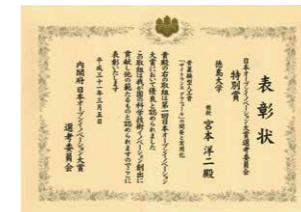 表彰状
日本オープンイノベーション大賞選考委員会
特別賞
徳島大学
教授 宮本 洋二 殿
貴殿の右の取組は第一回日本オープンイノベーション
大賞において優良と認められました
この取組は我が国の科学技術イノベーション創出に
貢献し他の範たるものと認められますのでここに
表彰いたします
平成三十一年三月五日
内閣府 日本オープンイノベーション大賞
選考委員会